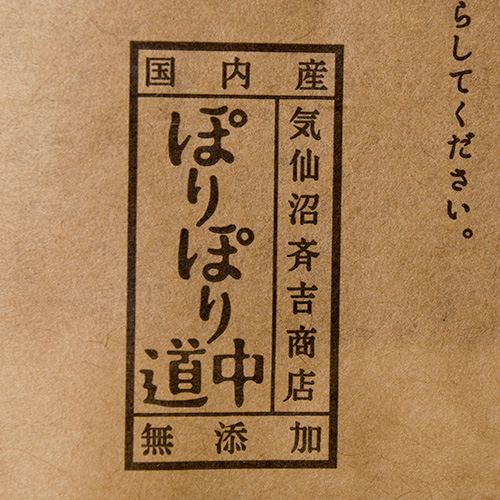 らしてください。
国内産
気仙沼斉吉商店
ぽりぽり
道中
無添加